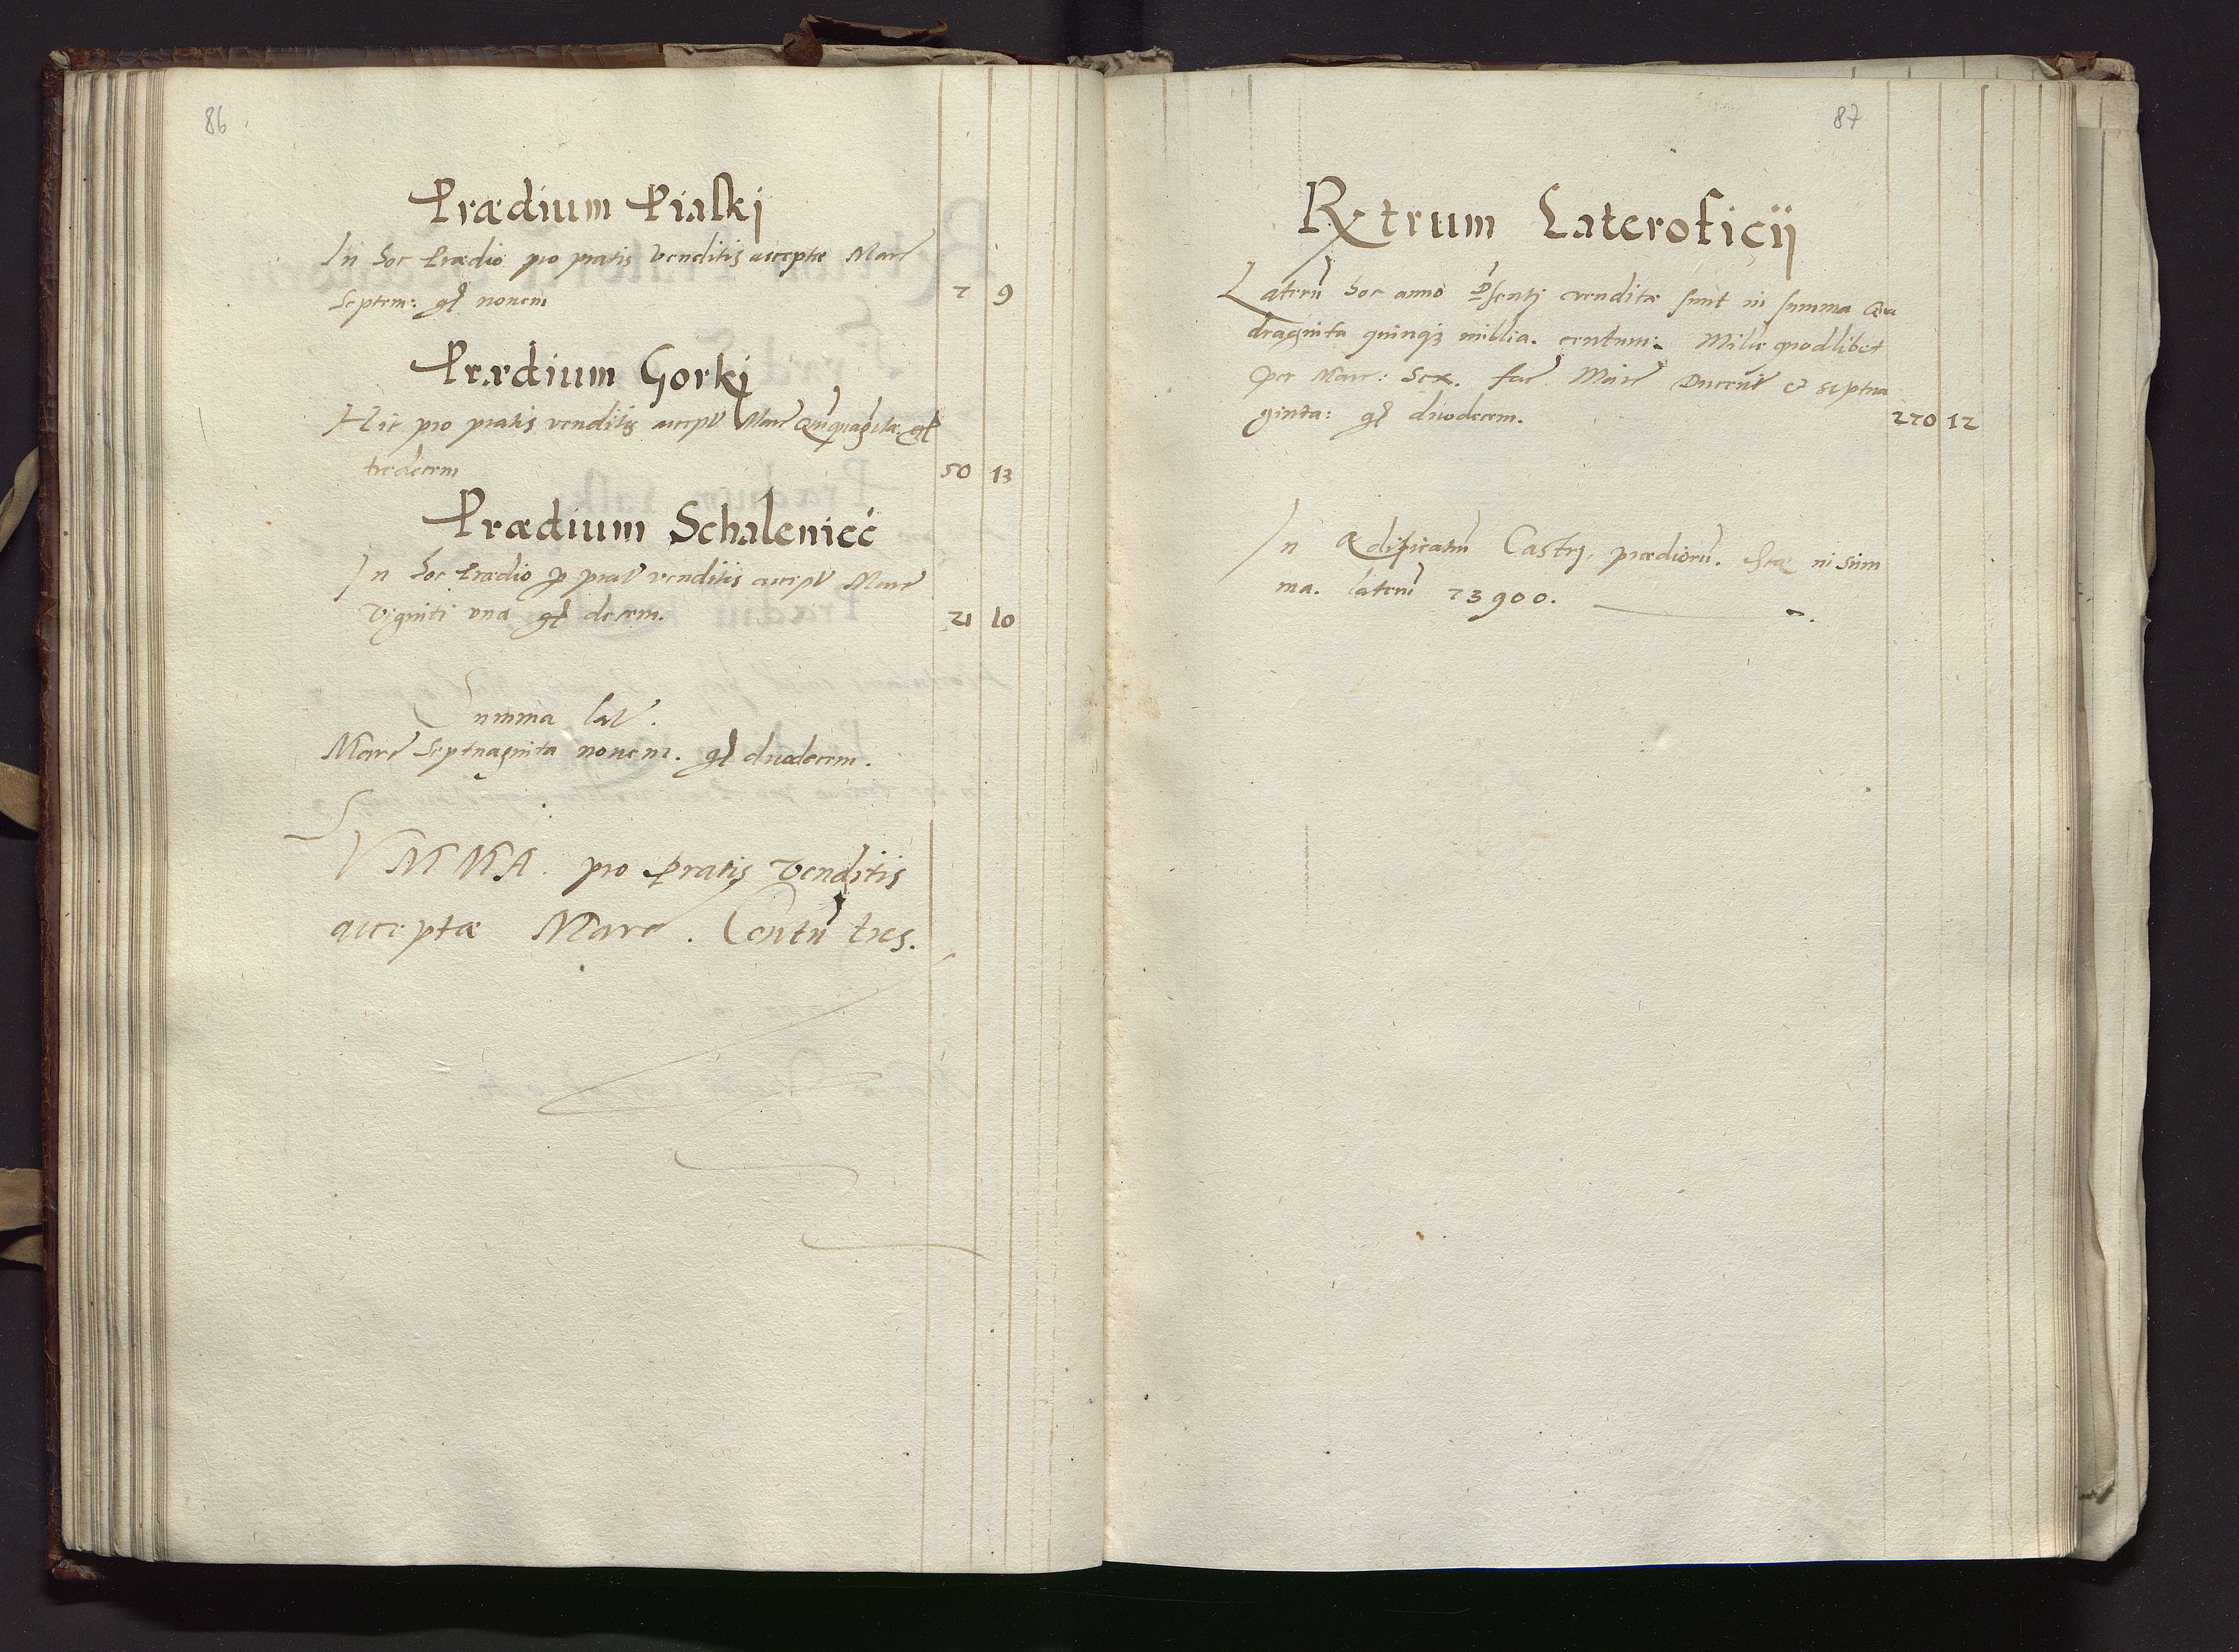 86
Prædium Pialki
In hoc Prædio pro pratis venditis acceptæ Marc
septem: gł novem 7 9
Prædium Gorki
Hic pro pratis venditis accept Marc Quīquagīta. gł
tredecem 50 13
Prædium Schalenicć
In hoc Prædio p prat venditis accept Marc
viginti una gł decem. 21 10
Summa lat.
Marc Septuaginta novem. gł duodecem.
SVMMA. pro Pratis Venditis
acceptæ Marc. Centū tres.
87
Rxtrum Lateroficij
Laterū hoc anno pſentj venditæ sunt in summa Qua
draginta quinqз millia. centum: Mille quodlibet
per Marc: Sex. fac Marc Ducent & septua
ginta: gł duodecem. 270 12
In Ædificatū Castrj, prædiorū. in Sum
ma. laterū 73900.